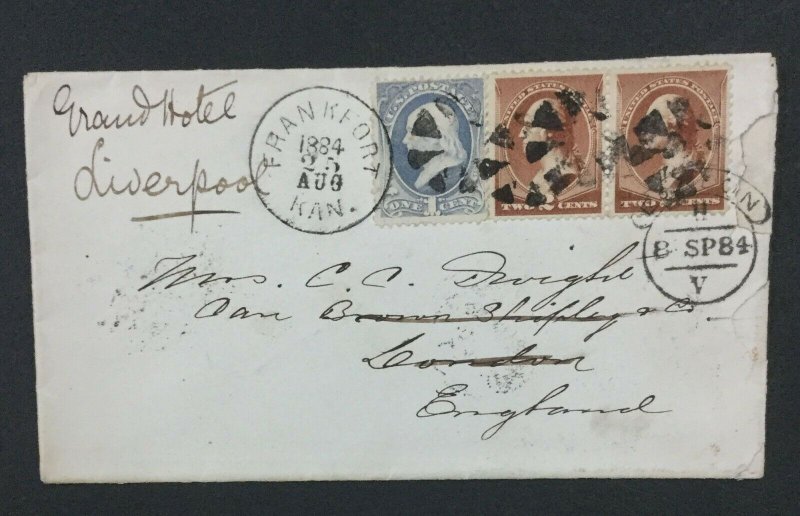 Grand Hotel
Liverpool
FRANKFORT
1884
25
AUG
KAN.
U.S. POSTAGE
ONE 1 CENT
UNITED STATES POSTAGE
TWO 2 CENTS
UNITED STATES POSTAGE
TWO CENTS
H
8 SP84
V
Mrs. C. C. Dwight
Care Brown Shipley & Co.
London
England